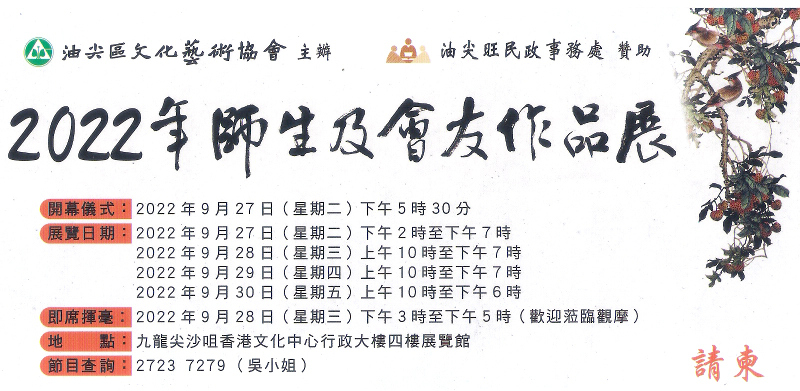 油尖區文化藝術協會 主辦 油尖旺民政事務處 贊助
2022年師生及會友作品展
開幕儀式：2022年9月27日（星期二）下午5時30分
展覽日期：2022年9月27日（星期二）下午2時至下午7時
2022年9月28日（星期三）上午10時至下午7時
2022年9月29日（星期四）上午10時至下午7時
2022年9月30日（星期五）上午10時至下午6時
即席揮毫：2022年9月28日（星期三）下午3時至下午5時（歡迎蒞臨觀摩）
地 點：九龍尖沙咀香港文化中心行政大樓四樓展覽館
節目查詢：2723 7279（吳小姐）
請柬